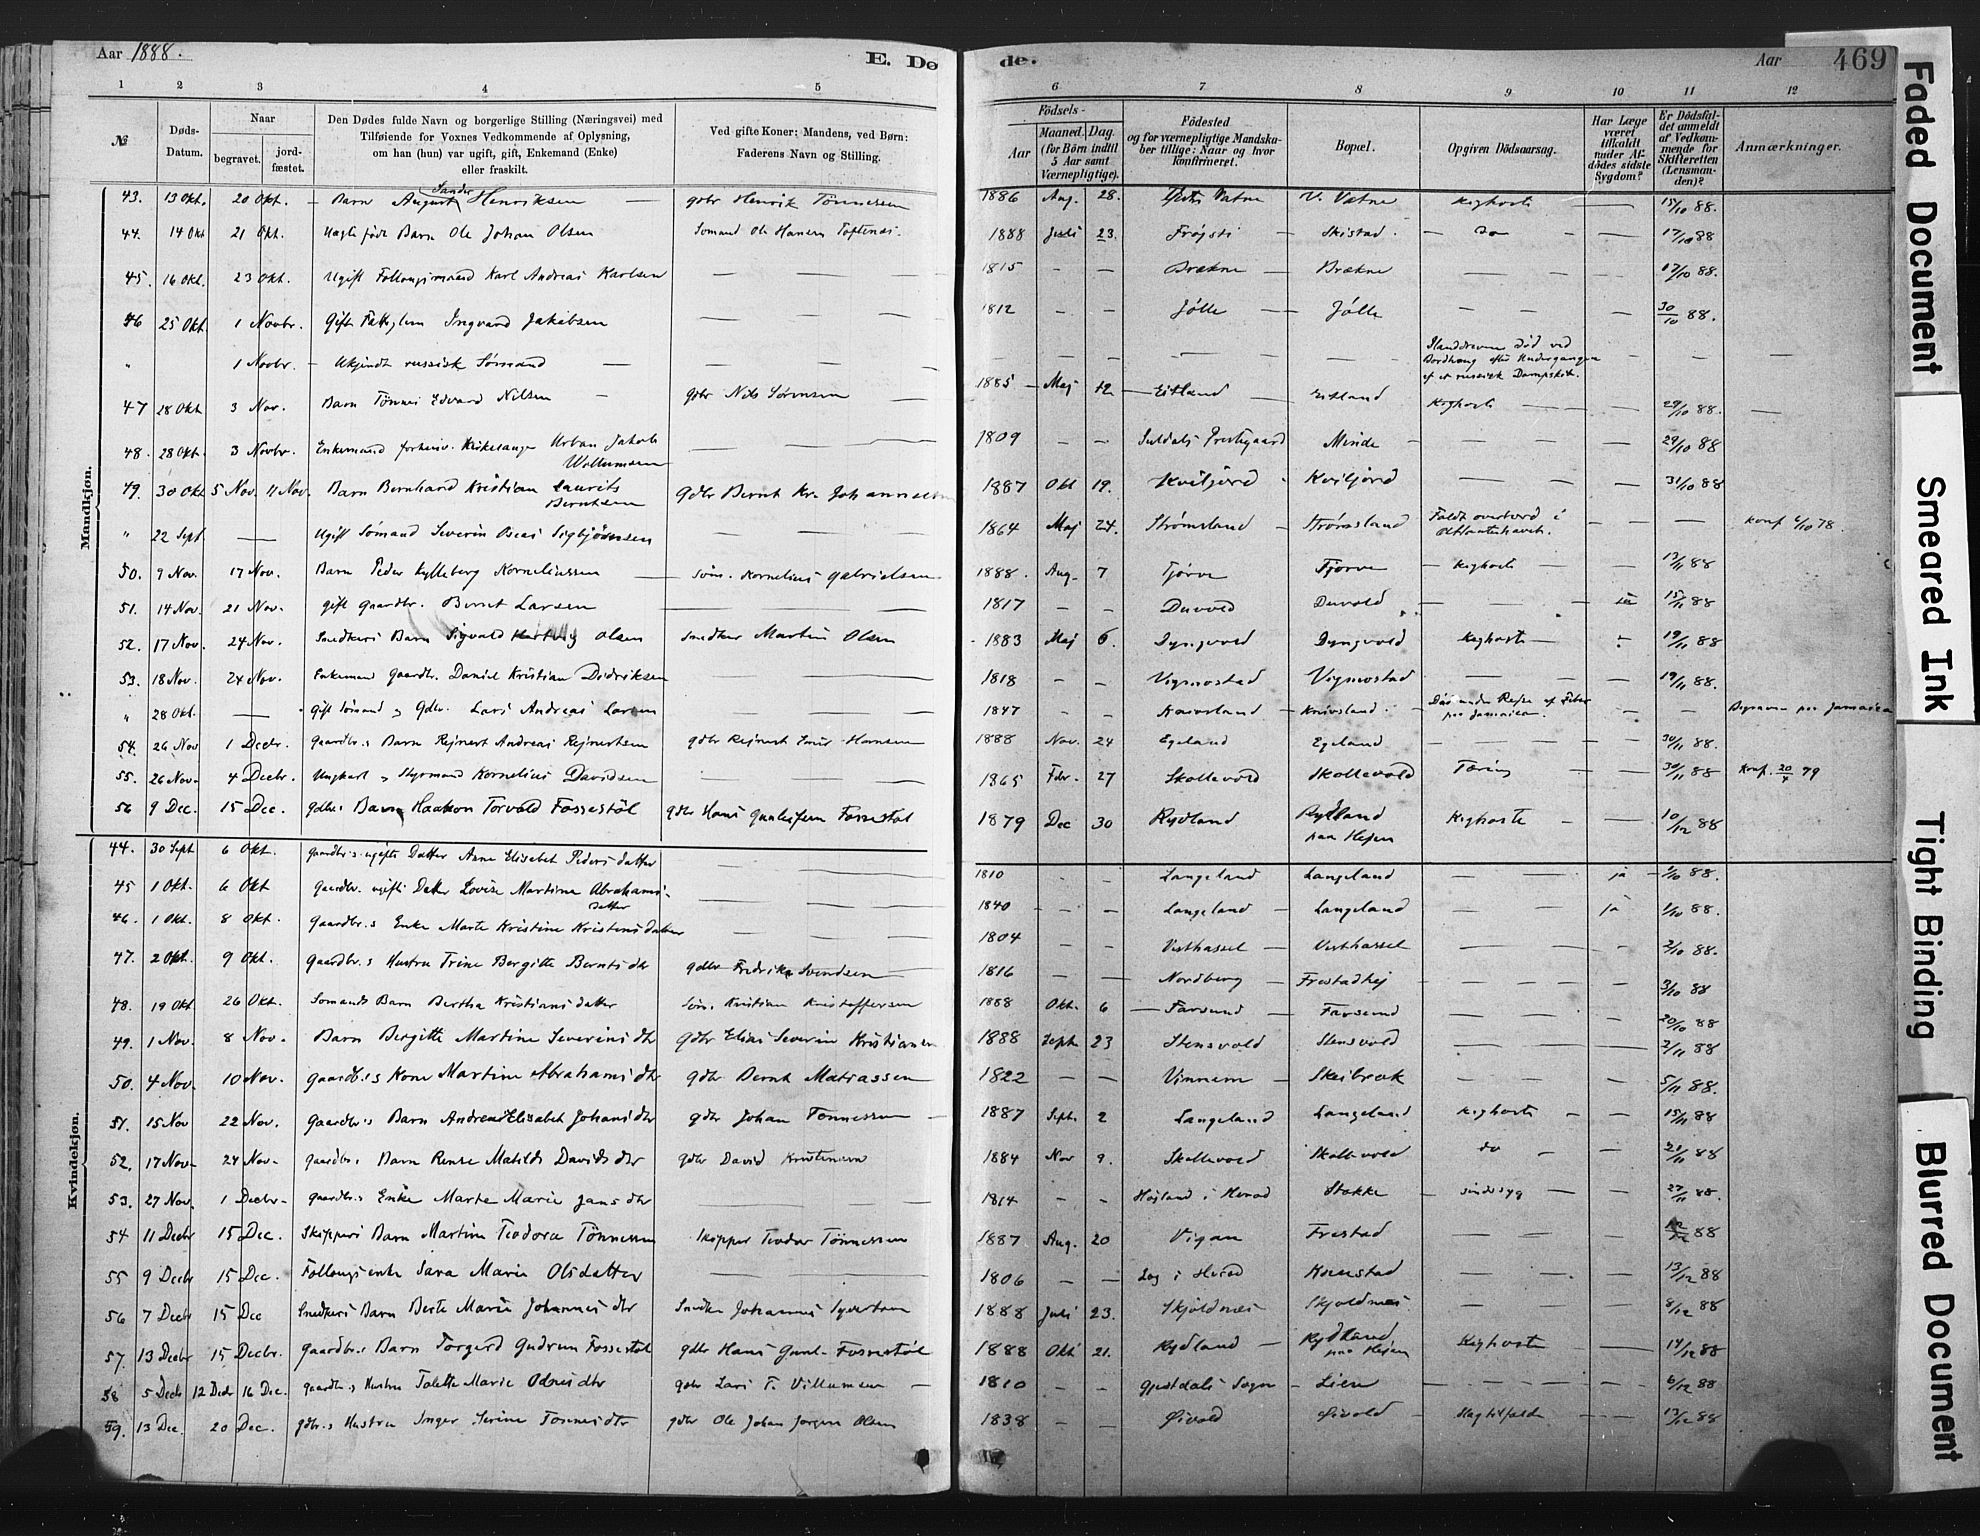 Aar 1888.
E. Døde.
Aar
469
1 2 3 4 5 6 7 8 9 10 11 12
№
Døds-Datum.
Naar
begravet.
jordfæstet.
Den Dødes fulde Navn og borgerlige Stilling (Næringsvei) med
Tilføiende for Voxnes Vedkommende af Oplysning,
om han (hun) var ugift, gift, Enkemand (Enke)
eller fraskilt.
Ved gifte Koner: Mandens, ved Børn:
Faderens Navn og Stilling.
Fødsels-
Aar
Maaned. Dag.
(for Børn indtil
5 Aar samt
Værnepligtige).
Fødested
og for værnepligtige Mandska-
ber tillige: Naar og hvor
konfirmeret.
Bopæl.
Opgiven Dødsaarsag.
Har Læge
været
tilkaldt
under Af-
dødes sidste
Sygdom?
Er Dødsfal-
det anmeldt
af Vedkom-
mende for
Skifteretten
(Lensman-
den)?
Anmærkninger.
Mandkjøn.
43. 13 Okt. 20 Okt. — Barn August Sander Henriksen — gdbr Henrik Tønnessen 1886 Aug. 28. Vatne V. Vatne Kighoste — 15/10 88.
44. 14 Okt 21 Okt. Uægte født Barn Ole Johan Olsen Sømand Ole Hansen Toftenæs. 1888 Juli 23. Frøjsti — Skistad. — Do — 17/10 88
45. 16 Okt. 23 Okt. Ugift Follougsmand Karl Andreas Karlsen — — — 1815 — — Brækne — Brækne — — — 17/10 88.
46 25 Okt 1 Novbr. Gift Fattiglem Ingvard Jakobsen — — — 1812 — — Jølle — Jølle — — — 30/10 88.
" 1 Novbr. — Ukjendt russisk Sømand — — — — — — — — Ilanddreven Død ved
Bordhaug efter Undergangen
af et russisk Dampskib. — — —
47 28 Okt 3 Nov. Barn Tønnes Edvard Nilsen — gdbr Nils Sørensen — 1885 — Maj 12 — Eitland — Eitland Kighoste — — 29/10 88. —
48. 28 Okt. 3 Novbr. Enkemand forhenv. Kirkesanger Urban Jakob
Wollumsen — — 1809 — — Suldals Prestegaard Minde — — — 29/10 88
49. 30 Okt 5 Nov. 11 Nov. Barn Bernhard Kristian Laurits
Berntsen gdbr Bernt Kr. Johannesen 1887 Okt 19. Kviljord — Kviljord — — — 31/10 88
" 22 Sept — Ugift Sømand Severin Oseas Sigbjørnsen — — 1864 Maj 24. Strømsland — Strømsland Faldt overbord i
Atlanterhavet. — — Konf 6/10 78.
50. 9 Nov. 17 Nov. Barn Peder Lylleberg Korneliussen — Søm. Kornelius Gabrielsen 1888. Aug. 7 Tjørve Tjorve — Kighoste — — 13/11 88
51. 14 Nov. 21 Nov. gift Gaardbr. Bernt Larsen — — — 1817 — — Duvold Duvold — — ja 15/11 88
52. 17 Nov. 24 Nov. Snedkers Barn Sigvald Hartvig Olsen Snedker Martin Olsen 1883 Maj 6. Dyngvold Dyngvold Kighoste — 19/11 88
53. 18 Nov. 24 Nov. Enkemand Gaardbr. Daniel Kristian Didriksen — — 1818 — — Vigmostad Vigmostad — — — 19/11 88.
" 28 Okt. — gift Sømand og Gdbr. Lars Andreas Larsen — — 1847 — — Knivsland — Knivsland — Død under Rejse af Feber
paa Jamaica. — — Begraven paa Jamaica
54. 26 Nov 1 Decbr. Gaardbr.s Barn Rejnert Andreas Rejnertsen gdbr Rejnert Hansen 1888 Nov. 24 Egeland Egeland — — — 30/11 88.
55. 26 Nov. 4 Decbr. Ungkarl og Styrmand Kornelius Davidsen — — 1865 Febr. 27 Skollevold Skollevold Tæring — — 30/11 88 Konf. 20/4 79
56 9 Dec. 15 Dec. gdbr.s Barn Haakon Torvald Fossestøl gdbr Hans Gunleifsen Fossestøl 1879 Dec 30 Rydland Rydland
paa Hejen Kighoste — — 10/12 88
Kvindekjøn.
44. 30 Sept 6 Okt. Gaardbr.s ugifte Datter Anne Elisabet Pedersdatter — — 1810 — — Langeland Langeland — — ja — 2/10 88.
45 1 Okt. 6 Okt Gaardbr. ugifte Datter Lovise Martine Abrahams-
datter — — 1840 — — Langeland — Langeland — — ja 2/10 88.
46. 1 Okt. 8 Okt. Gaardbr.s Enke Marte Kristine Kristensdatter — — 1804 — — Vesthassel — Vesthassel — — — 2/10 88.
47. 2 Okt. 9 Okt. Gaardbr.s Hustru Trine Bergitte Berntsdtr gdbr Fredrik Svendsen 1816 — — Nordberg — Frestadhej — — — 3/10 88
48. 19 Okt 26 Okt. Sømands Barn Bertha Kristiansdatter Søm. Kristian Kristoffersen 1888 Okt. 6 — Farsund — Farsund — — — 20/10 88
49. 1 Nov. 8 Nov. Barn Bergitte Martine Severinsdtr gdbr Elias Severin Kristiansen 1888 Septr 23 Stensvold Stensvold — — — 2/11 88
50. 4 Nov. 10 Nov. Gaardbr.s Kone Martine Abrahamsdtr gdbr Bernt Matiassen 1822 — — Vinnem — Skeibrok — — — 5/11 88.
51. 15 Nov 22 Nov. Gaardbr.s Barn Andrea Elisabet Johansdtr gdbr Johan Tønnessen — 1887 Sept. 2 Langeland Langeland Kighoste — — 15/11 88
52. 17 Nov. 24 Nov. Gaardbr.s Barn Rense Matilde Davidsdtr gdbr David Kristensen 1884 Nov 9. Skollevold Skollevold do — — 21/11 88
53. 27 Nov. 1 Decbr. Gaardbr.s Enke Marte Marie Jansdtr — — 1814 — — Højland i Herad Stokke — sindssyg — — 27/11 88.
54 11 Decbr 15 Dec. Skippers Barn Martine Teodora Tønnessen Skipper Teodor Tønnessen 1887 Aug. 20 Vigan Frestad — — — 12/12 88
55 9 Decbr 15 Dec. Follougsenke Sara Marie Olsdatter — — 1806 — — Log i Herad — — — 13/12 88
56 7 Decbr 15 Dec Snedkers Barn Berte Marie Johannesdtr Snedker Johannes 1888 Juli 23. Skjoldnes Skjoldnes — — — 8/12 88
57. 13 Decbr 15 Decbr. Gaardbr.s Barn Torgerd Gudrun Fossestøl gdbr Hans Gunl. Fossestøl 1888 Okt 21. Rydland — Rydland
paa Hejen Kighoste — — 14/12 88
58 5 Decbr 12 Decbr 16 Dec. Gaardbr.s Hustru Talette Marie Odmsdtr gdbr Lars T. Villumsen — 1810 — — Gjestdals Sogn — Lien — — — 6/12 88
59. 13 Dec. 20 Dec. gdbr.s Hustru Inger Serine Tønnesdtr gdbr Ole Johan Jørgen Olsen 1838 — — Øivold Øivold — Slagtilfælde — — 13/12 88
Faded Document
Smeared Ink
Tight Binding
Blurred Document